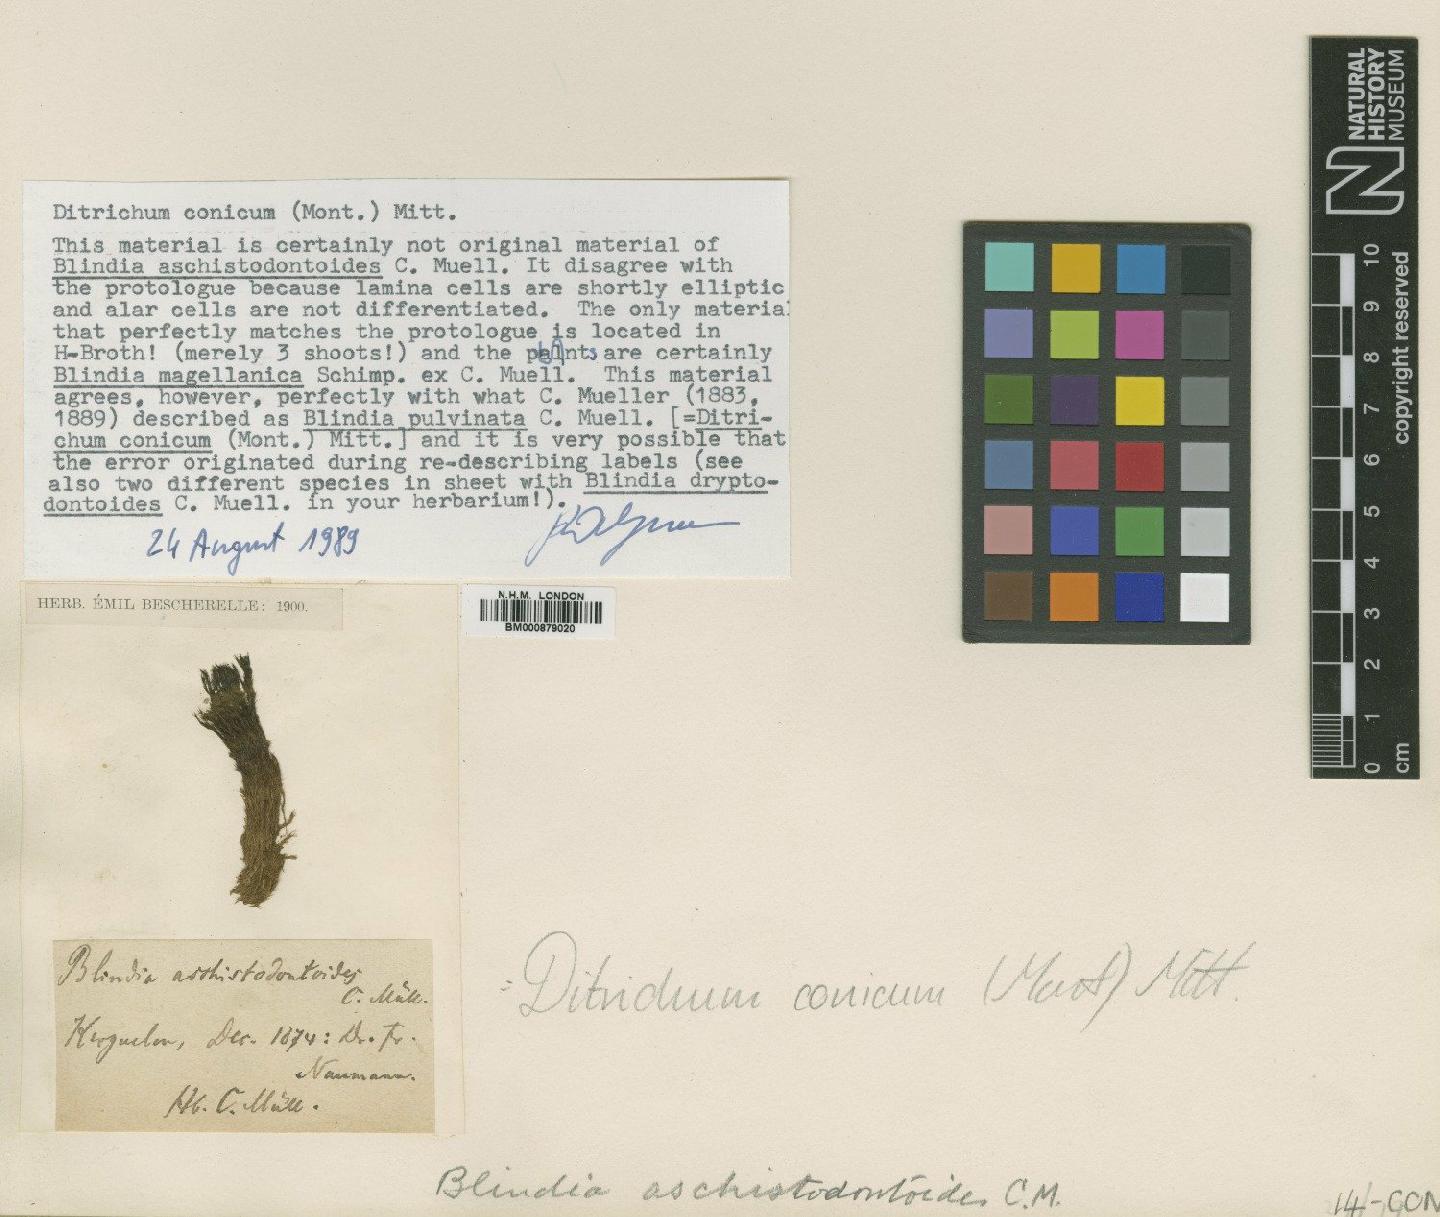 Ditrichum conicum (Mont.) Mitt.
This material is certainly not original material of
Blindia aschistodontoides C. Muell. It disagree with
the protologue because lamina cells are shortly elliptic
and alar cells are not differentiated. The only material
that perfectly matches the protologue is located in
H-Broth! (merely 3 shoots!) and the plants are certainly
Blindia magellanica Schimp. ex C. Muell. This material
agrees, however, perfectly with what C. Mueller (1883,
1889) described as Blindia pulvinata C. Muell. [=Ditri-
chum conicum (Mont.) Mitt.] and it is very possible that
the error originated during re-describing labels (see
also two different species in sheet with Blindia drypto-
dontoides C. Muell. in your herbarium!).
24 August 1989
HERB. ÉMIL BESCHERELLE: 1900.
N.H.M. LONDON
BM000879020
Blindia aschistodontoides
C. Müll.
Kerguelen, Dec. 1874: Dr. Fr.
Naumann.
Hb. C. Müll.
= Ditrichum conicum (Mont) Mitt.
Blindia aschistodontoides C.M.
14-CON
NATURAL
HISTORY
MUSEUM
copyright reserved
10
9
8
7
6
5
4
3
2
1
0
cm